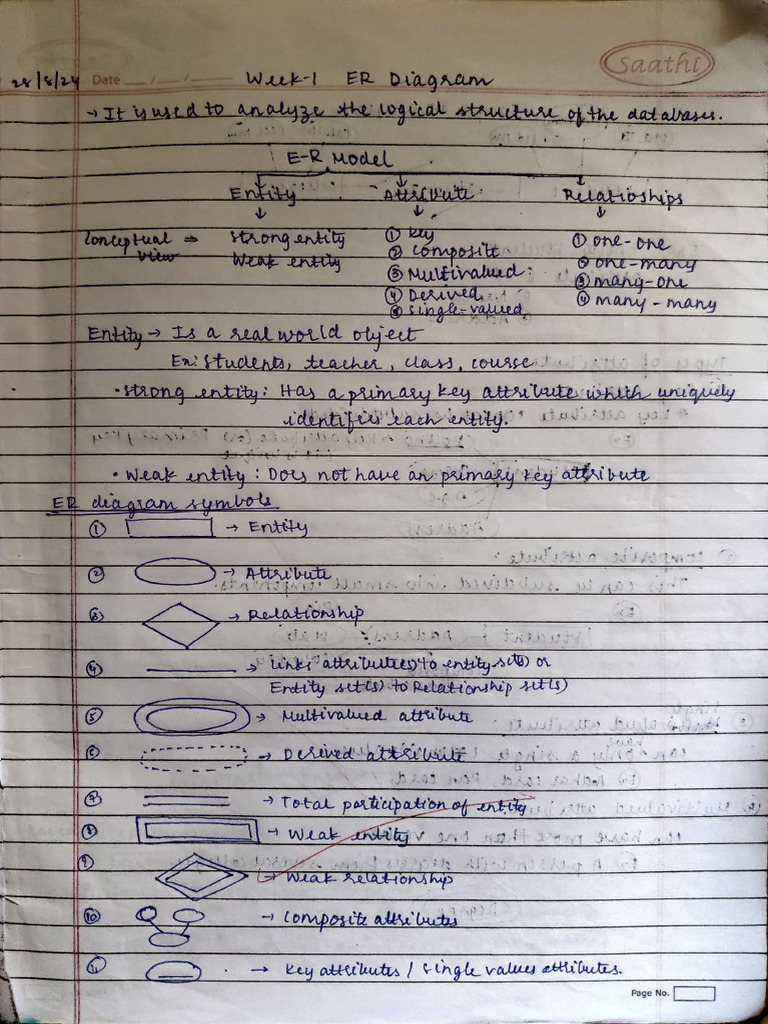 Saathi
28/8/24 Date __/__/__ Week-1 ER Diagram
→ It is used to analyze the logical structure of the databases.
E-R Model
Entity Attribute Relatioships
Conceptual view → Strong entity ① Key ① one-one
Weak entity ② Composite ② one-many
③ Multivalued ③ many-one
④ Derived ④ many-many
⑤ Single-valued
Entity → Is a real world object
Ex: Students, teacher, class, course
• Strong entity: Has a primary key attribute which uniquely
identifies each entity.
• Weak entity: Does not have an primary key attribute
ER diagram symbols
① → Entity
② → Attribute
③ → Relationship
④ → links attribute(s) to entity set(s) or
Entity set(s) to Relationship set(s)
⑤ → Multivalued attribute
⑥ → Derived attribute
⑦ → Total participation of entity
⑧ → Weak entity
⑨ → Weak relationship
⑩ → Composite attributes
⑪ → Key attributes / single values attributes.
Page No.